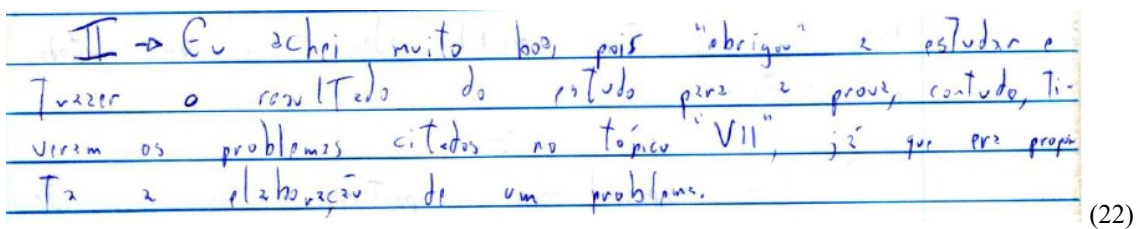 II → Eu achei muito boa, pois "obrigou" a estudar e
Trazer o resulTado do esTudo para a prova, contudo, Ti-
veram os problemas citados no tópico "VII", já que era propos
Ta a elaboração de um problema.
(22)